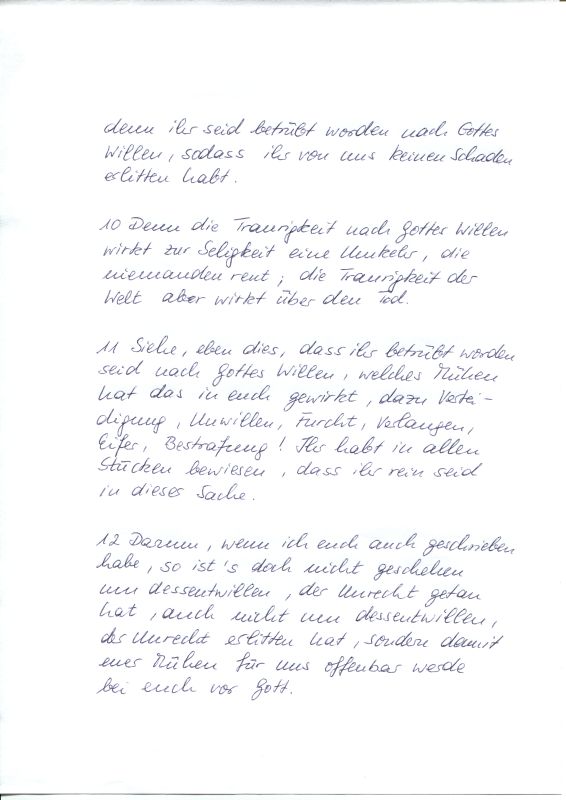 denn ihr seid betrübt worden nach Gottes
Willen, sodass ihr von uns keinen Schaden
erlitten habt.
10 Denn die Traurigkeit nach Gottes Willen
wirkt zur Seligkeit eine Umkehr, die
niemanden reut; die Traurigkeit der
Welt aber wirkt über den Tod.
11 Siehe, eben dies, dass ihr betrübt worden
seid nach Gottes Willen, welches Mühen
hat das in euch gewirkt, dazu Vertei-
digung, Unwillen, Furcht, Verlangen,
Eifer, Bestrafung! Ihr habt in allen
Stücken bewiesen, dass ihr rein seid
in dieses Sache.
12 Darum, wenn ich euch auch geschrieben
habe, so ist's doch nicht geschehen
um dessentwillen, der Unrecht getan
hat, auch nicht um dessentwillen,
der Unrecht erlitten hat, sondern damit
euer Mühen für uns offenbar werde
bei euch vor Gott.